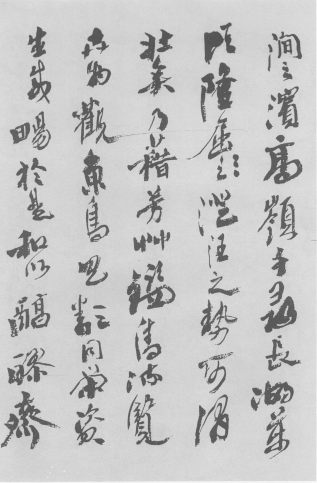 澗之濱高嶺千尋長湖萬
頃隆屈澄汪之勢可謂
壯矣乃藉芳艸鑑清流覽
卉物觀魚鳥具類同榮資
生咸暢於是和以醇醪齊